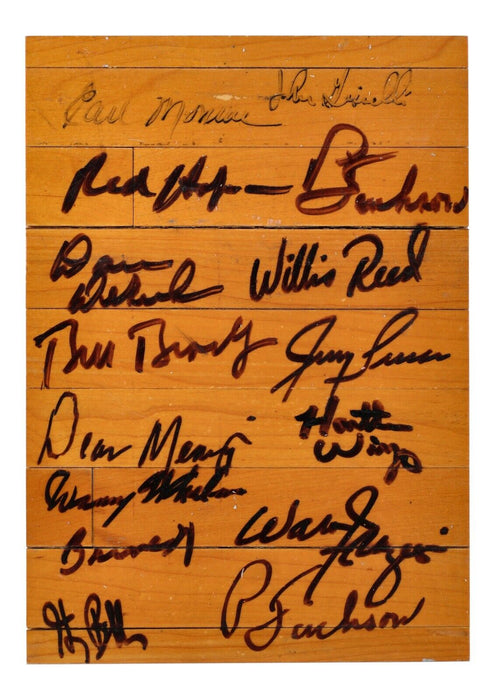 Earl Monroe John Gianelli
Red Holzman P Jackson
Dave DeBusschere Willis Reed
Bill Bradley Jerry Lucas
Dean Meminger Hawthorne Wingo
Barnett Walt Frazier
Hy Bell P Jackson